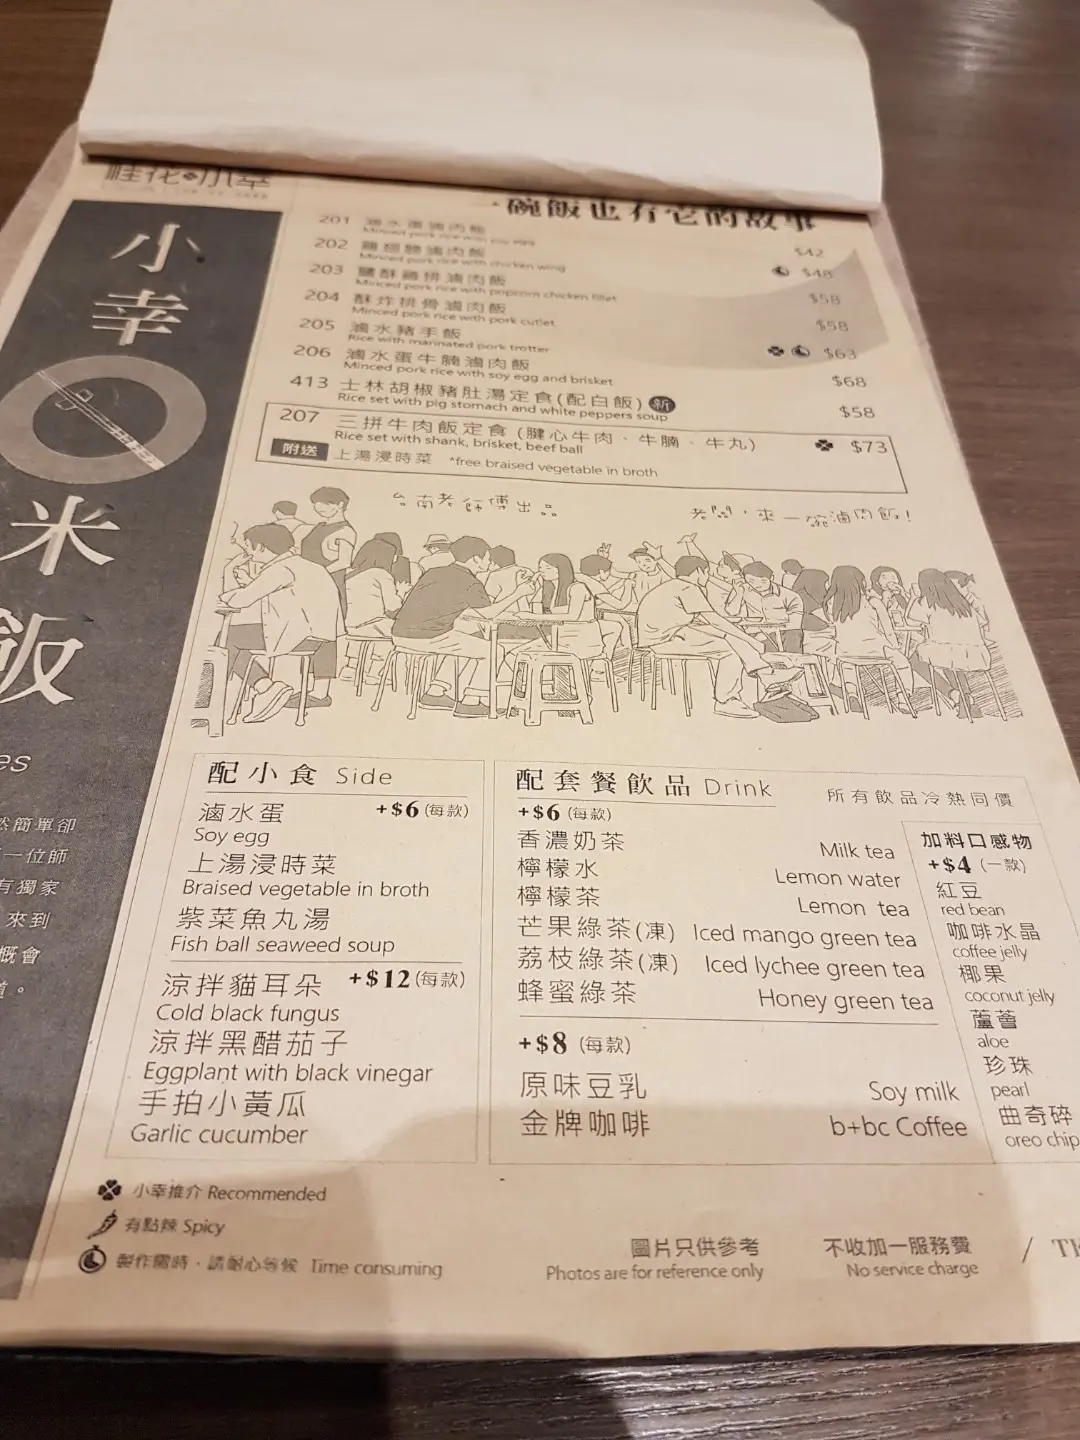 桂花 小幸
小幸
米飯
es
然簡單卻
一位師
有獨家
來到
概會
道。
一碗飯也有它的故事
201 滷水蛋滷肉飯 $42
Minced pork rice with soy egg
202 雞翅膀滷肉飯 $48
Minced pork rice with chicken wing
203 鹽酥雞排滷肉飯 $58
Minced pork rice with popcorn chicken fillet
204 酥炸排骨滷肉飯 $58
Minced pork rice with pork cutlet
205 滷水豬手飯 $63
Rice with marinated pork trotter
206 滷水蛋牛腩滷肉飯 $68
Minced pork rice with soy egg and brisket
413 士林胡椒豬肚湯定食(配白飯) 新 $58
Rice set with pig stomach and white peppers soup
207 三拼牛肉飯定食 (腱心牛肉、牛腩、牛丸) $73
Rice set with shank, brisket, beef ball
附送 上湯浸時菜 *free braised vegetable in broth
台南老師傅出品
老闆，來一碗滷肉飯!
配小食 Side
滷水蛋 +$6 (每款)
Soy egg
上湯浸時菜
Braised vegetable in broth
紫菜魚丸湯
Fish ball seaweed soup
涼拌貓耳朵 +$12 (每款)
Cold black fungus
涼拌黑醋茄子
Eggplant with black vinegar
手拍小黃瓜
Garlic cucumber
配套餐飲品 Drink 所有飲品冷熱同價
+$6 (每款)
香濃奶茶 Milk tea
檸檬水 Lemon water
檸檬茶 Lemon tea
芒果綠茶(凍) Iced mango green tea
荔枝綠茶(凍) Iced lychee green tea
蜂蜜綠茶 Honey green tea
+$8 (每款)
原味豆乳 Soy milk
金牌咖啡 b+bc Coffee
加料口感物
+$4 (一款)
紅豆
red bean
咖啡水晶
coffee jelly
椰果
coconut jelly
蘆薈
aloe
珍珠
pearl
曲奇碎
oreo chip
小幸推介 Recommended
有點辣 Spicy
製作需時，請耐心等候 Time consuming
圖片只供參考
Photos are for reference only
不收加一服務費
No service charge
/ TH